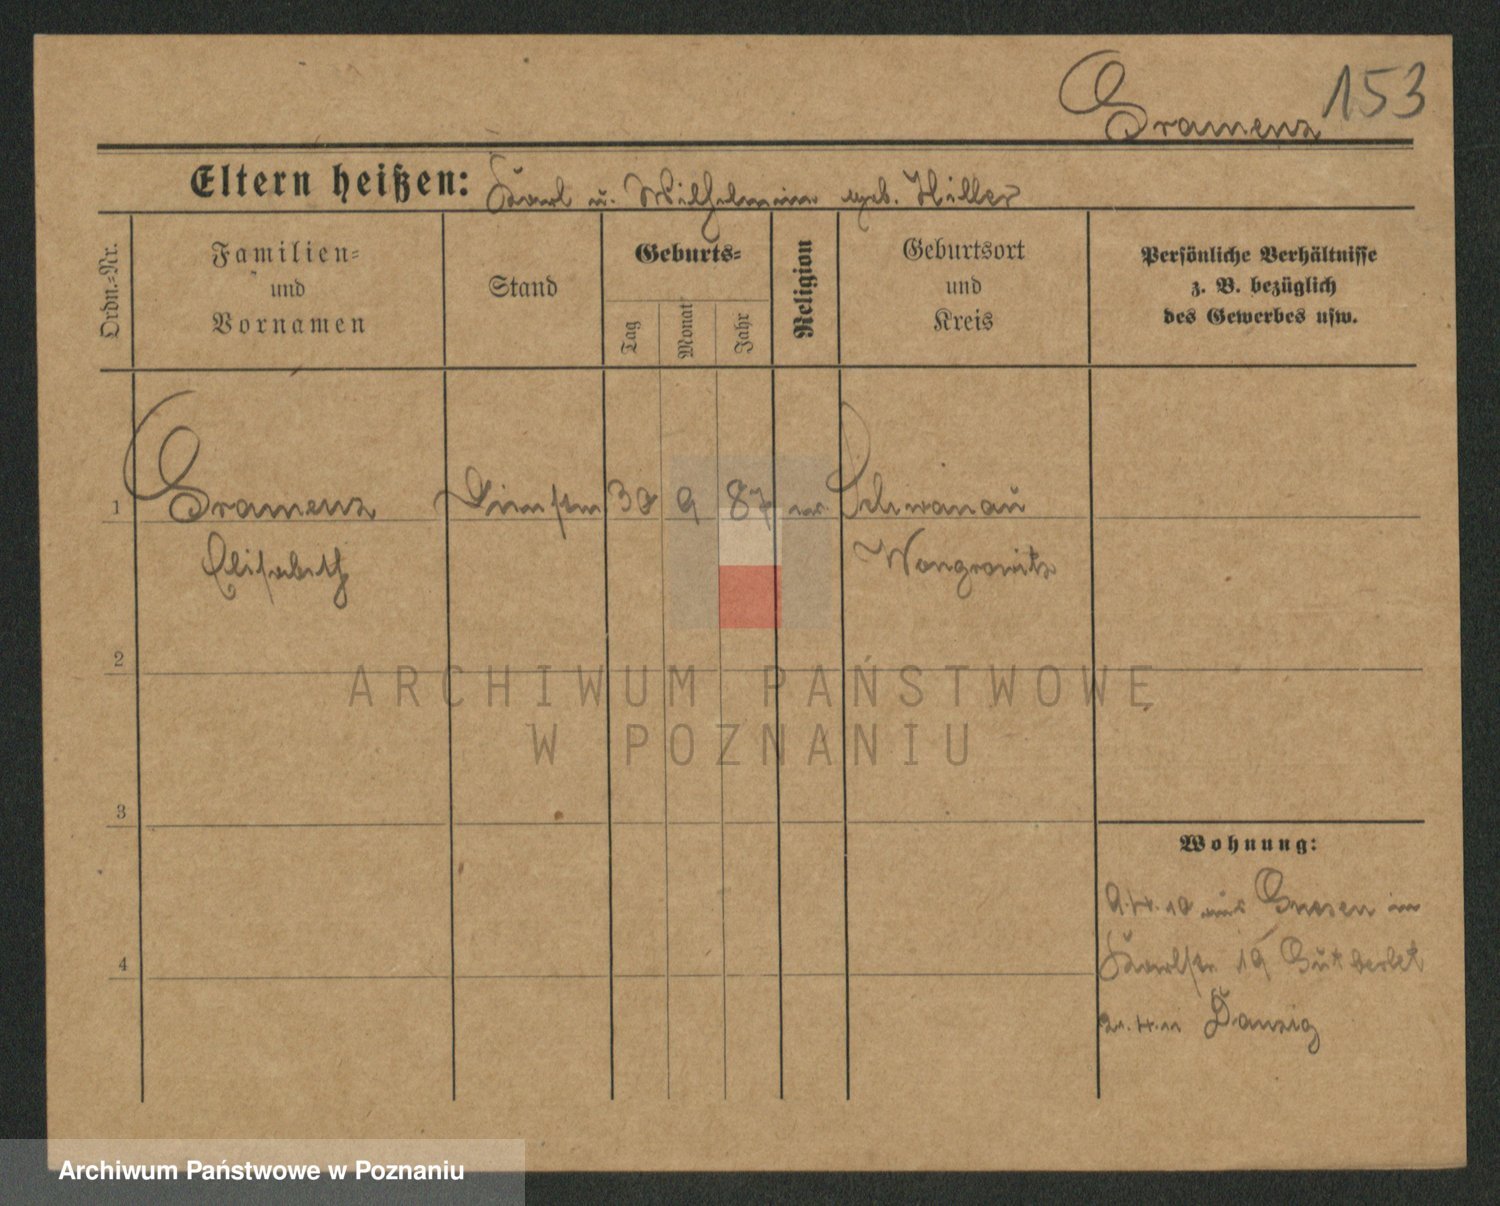 Gramenz 153
Eltern heißen: Karl u. Wilhelmine geb. Hiller
Ordn.-Nr.
Familien-
und
Vornamen
Stand
Geburts-
Tag
Monat
Jahr
Religion
Geburtsort
und
Kreis
Persönliche Verhältnisse
z. B. bezüglich
des Gewerbes usw.
1 Gramenz 30 9 87 ev. Schwanau
Elisabeth Wongrowitz
2
ARCHIWUM PAŃSTWOWE
W POZNANIU
3
Wohnung:
9.4.10 aus Gnesen in
4 Karlstr 19 Gutberlet
21.4.11 Danzig
Archiwum Państwowe w Poznaniu